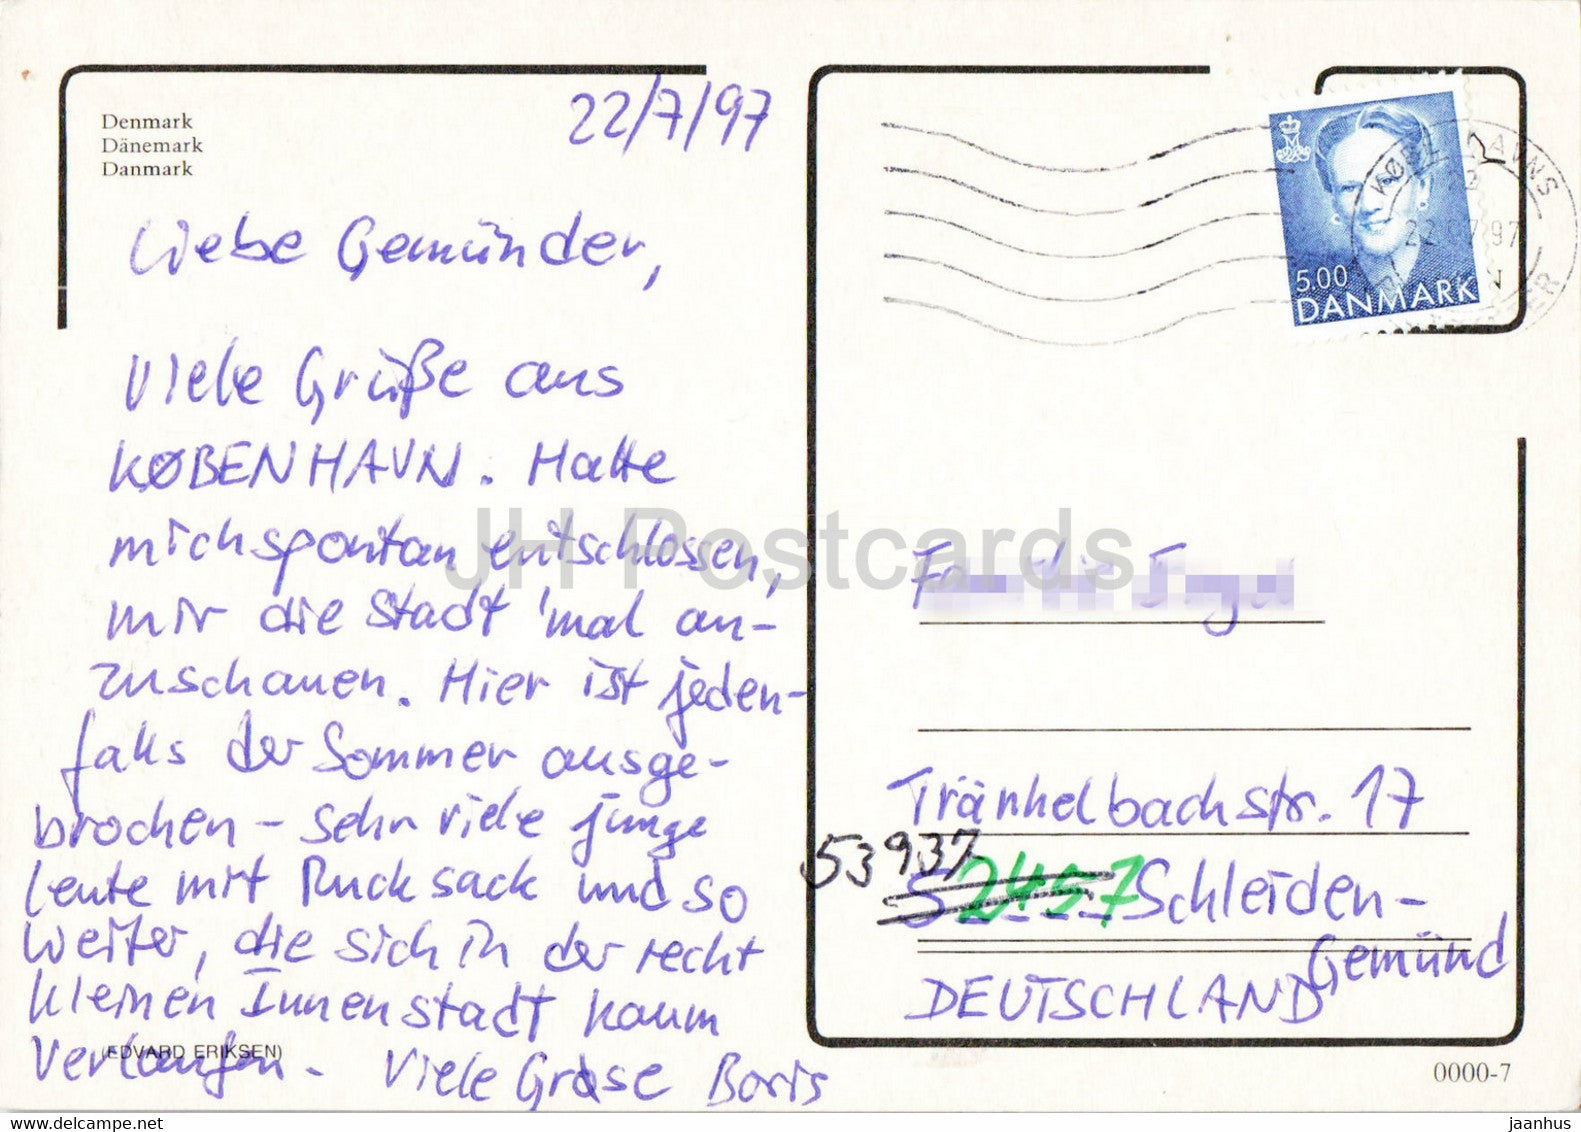 Denmark
Dänemark
Danmark
22/7/97
Liebe Gemünder,
Viele Grüße aus
KØBENHAVN. Hatte
mich spontan entschlossen,
mir die Stadt 'mal an-
zuschauen. Hier ist jeden-
falls der Sommer ausge-
brochen - sehr viele junge
Leute mit Rucksack und so
weiter, die sich in der recht
kleinen Innenstadt kaum
verlaufen. Viele Grüsse Boris
(EDVARD ERIKSEN)
5.00
DANMARK
KØBENHAVNS
22.07.97
JH Postcards
Tränkelbachstr. 17
53937
2457 Schleiden-
Gemünd
DEUTSCHLAND
0000-7
www.delcampe.net
jaanhus